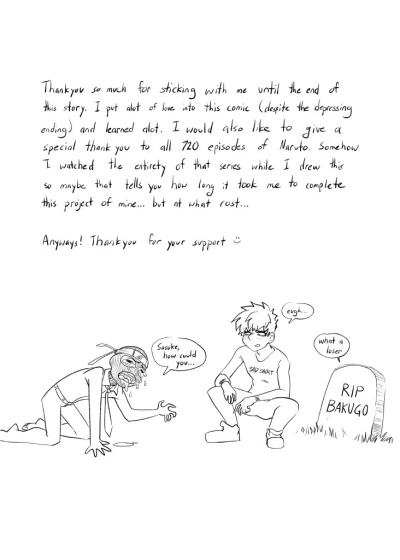 Thankyou so much for sticking with me until the end of
this story. I put alot of love into this comic (despite the depressing
ending) and learned alot. I would also like to give a
special thank you to all 720 episodes of Naruto. Somehow
I watched the entirety of that series while I drew this
so maybe that tells you how long it took me to complete
this project of mine... but at what cost...
Anyways! Thankyou for your support
eugh...
Sasuke,
how could
you...
what a
loser
RIP
BAKUGO